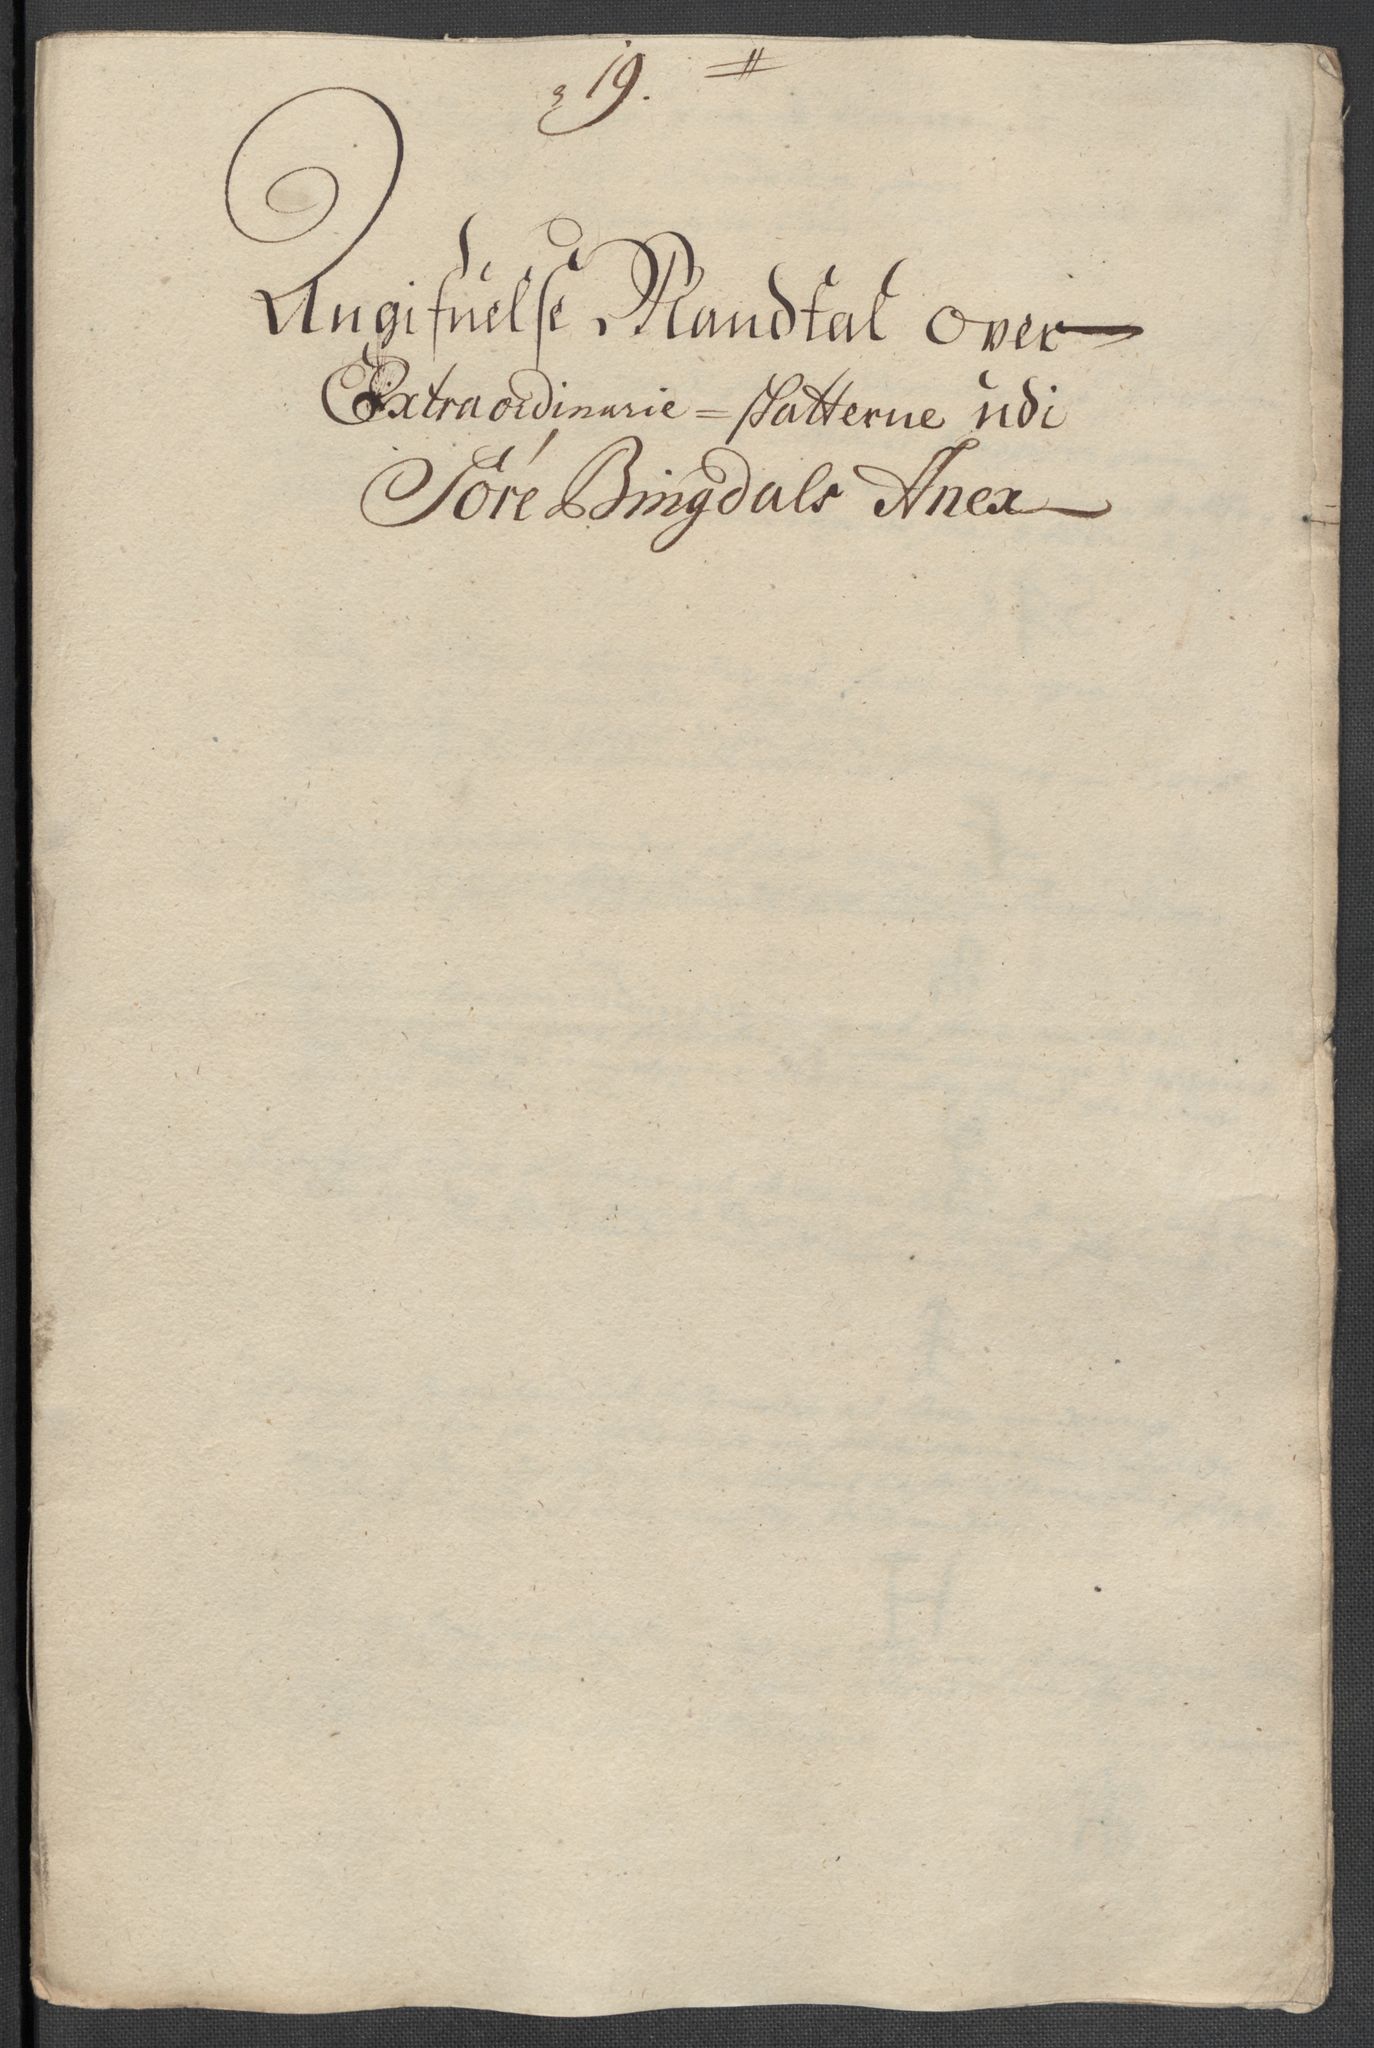 19.
Angifuelse Mandtal over
Extraordinarie = Skatterne udi
Söre Bingdals Anex